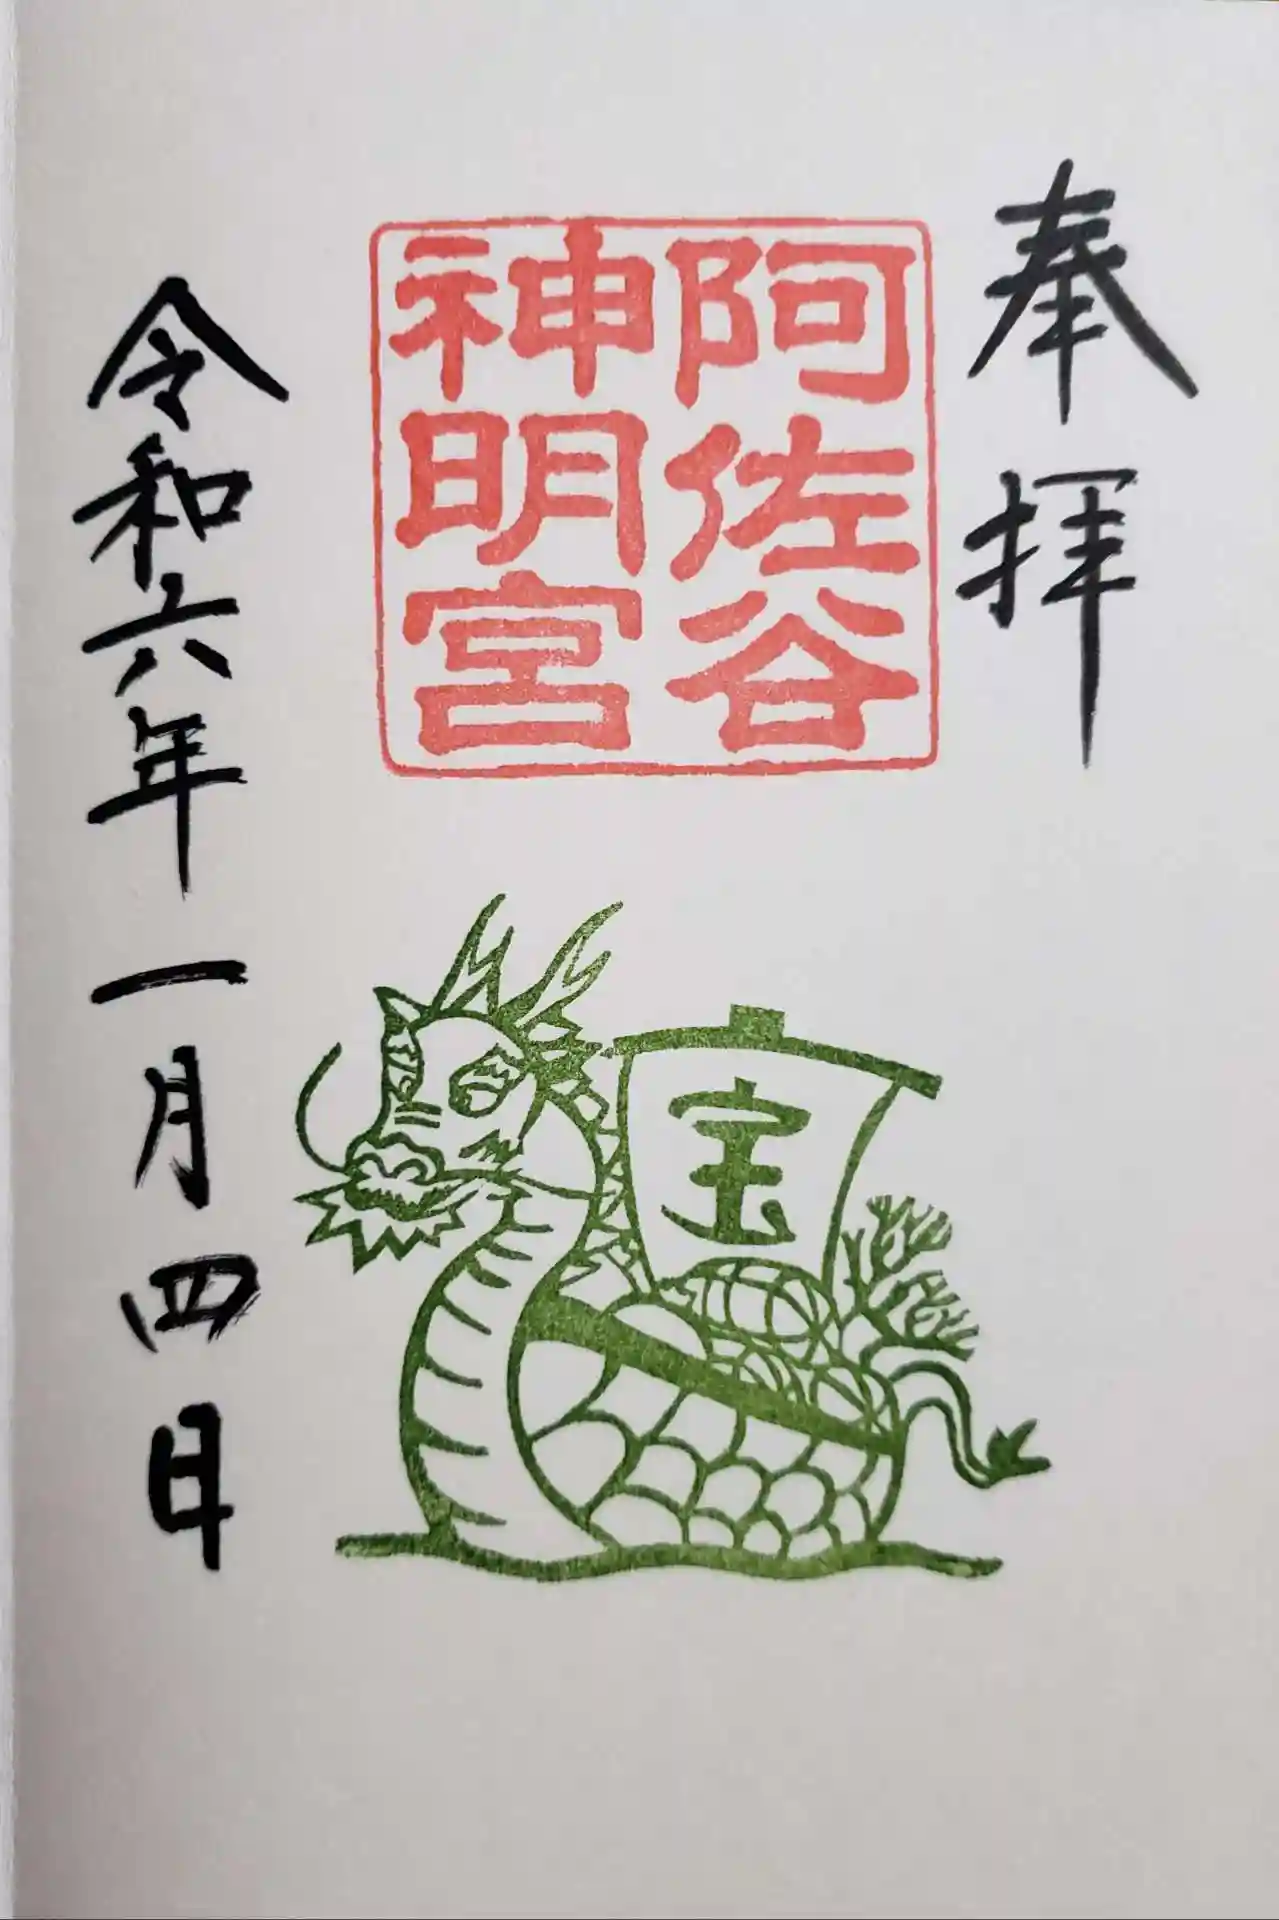 奉拝
阿佐谷
神明宮
宝
令和六年一月四日